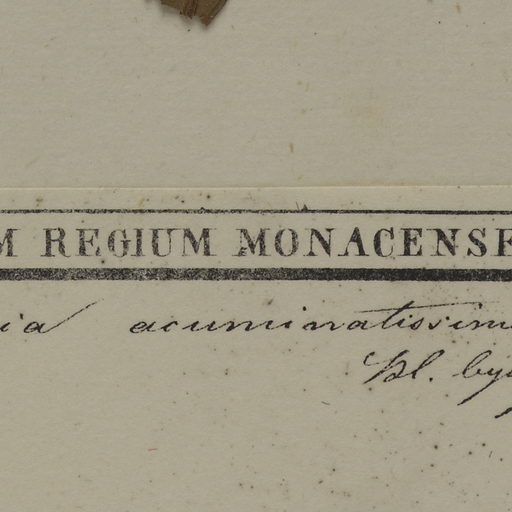 M REGIUM MONACENSE
ia acuminatissim
Bl. by